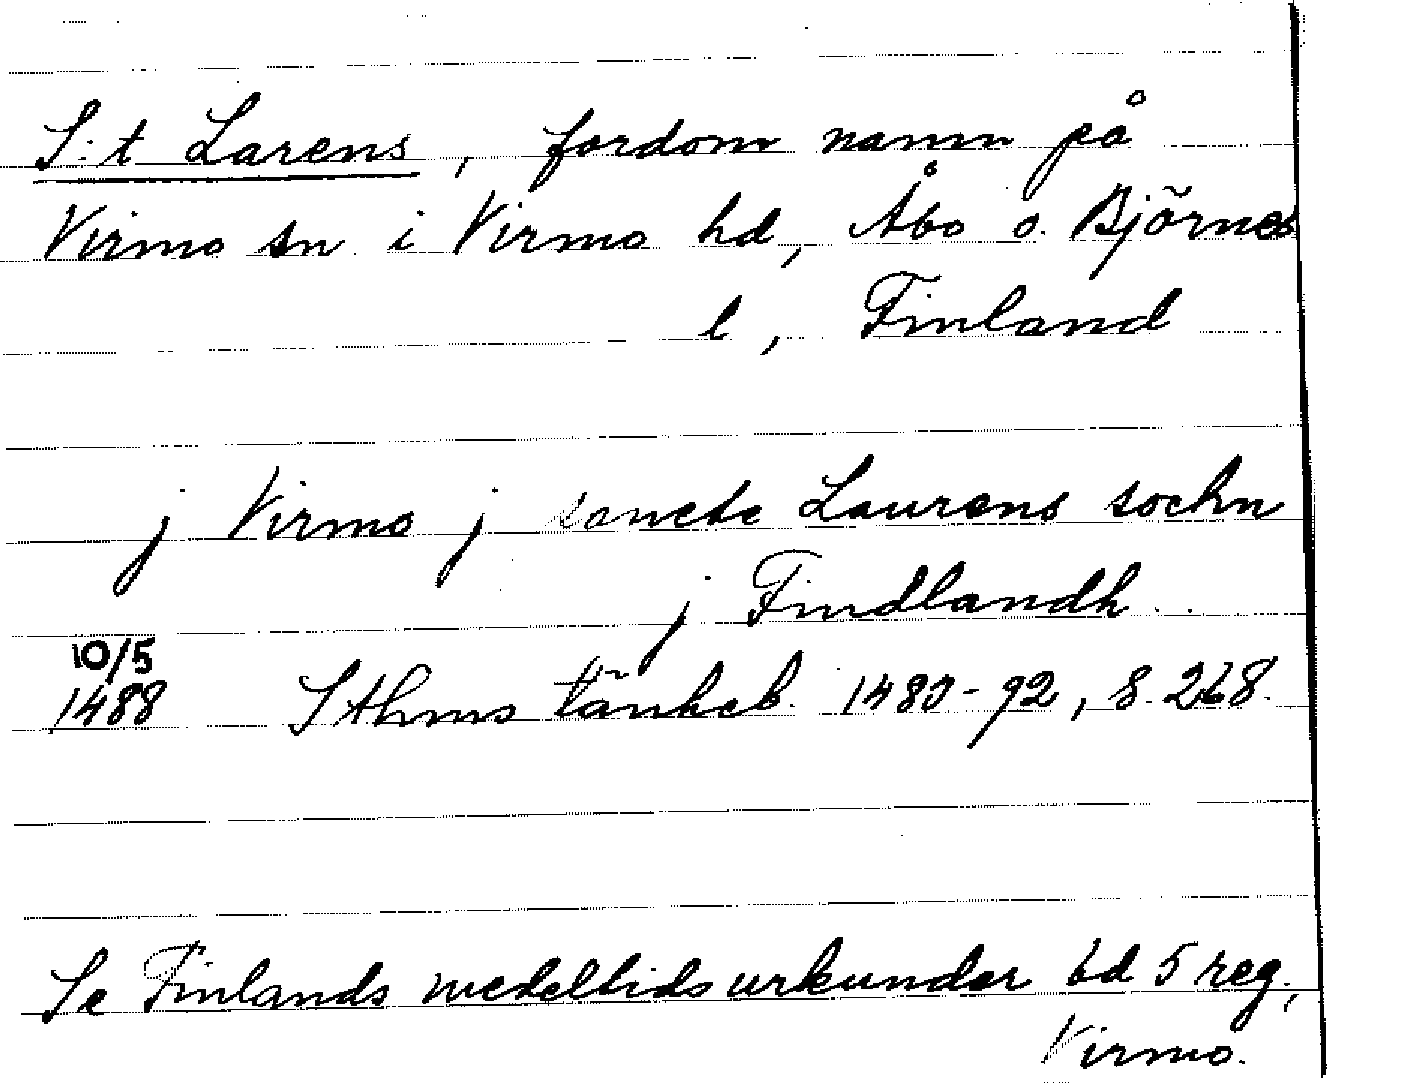 S:t Larens, fordom namn på
Virmo sn i Virmo hd, Åbo o. Björneb
l, Finland
j Virmo j sancte Laurens sochn
j Findlandh
10/5
1488 Sthms tänkeb. 1483-92, s. 268.
Se Finlands medeltidsurkunder bd 5 reg.,
Virmo.